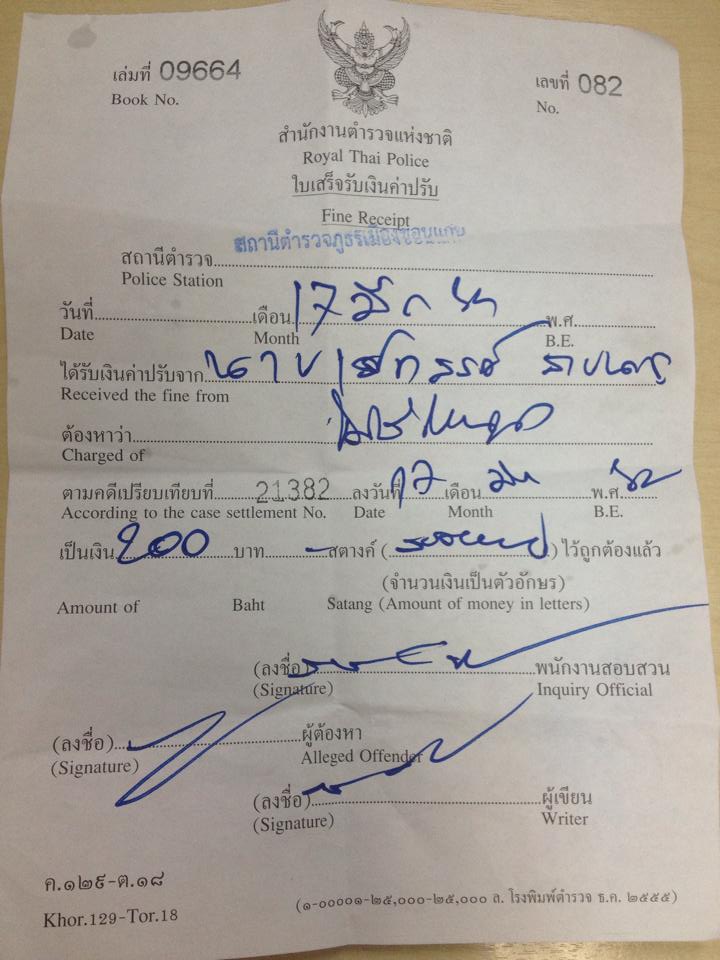 เล่มที่ 09664
Book No.
เลขที่ 082
No.
สำนักงานตำรวจแห่งชาติ
Royal Thai Police
ใบเสร็จรับเงินค่าปรับ
Fine Receipt
สถานีตำรวจภูธรเมืองขอนแก่น
สถานีตำรวจ
Police Station
วันที่ เดือน 17 พ.ศ.
Date Month B.E.
ได้รับเงินค่าปรับจาก นาย
Received the fine from
ต้องหาว่า
Charged of
ตามคดีเปรียบเทียบที่ 21382 ลงวันที่ 17 เดือน พ.ศ.
According to the case settlement No. Date Month B.E.
เป็นเงิน 200 บาท - สตางค์ ( ) ไว้ถูกต้องแล้ว
(จำนวนเงินเป็นตัวอักษร)
Amount of Baht Satang (Amount of money in letters)
(ลงชื่อ) พนักงานสอบสวน
(Signature) Inquiry Official
(ลงชื่อ) ผู้ต้องหา
(Signature) Alleged Offender
(ลงชื่อ) ผู้เขียน
(Signature) Writer
ค.๑๒๙-ต.๑๘
Khor.129-Tor.18
(๑-๐๐๐๐๑-๒๕,๐๐๐-๒๕,๐๐๐ ล. โรงพิมพ์ตำรวจ ธ.ค. ๒๕๕๕)